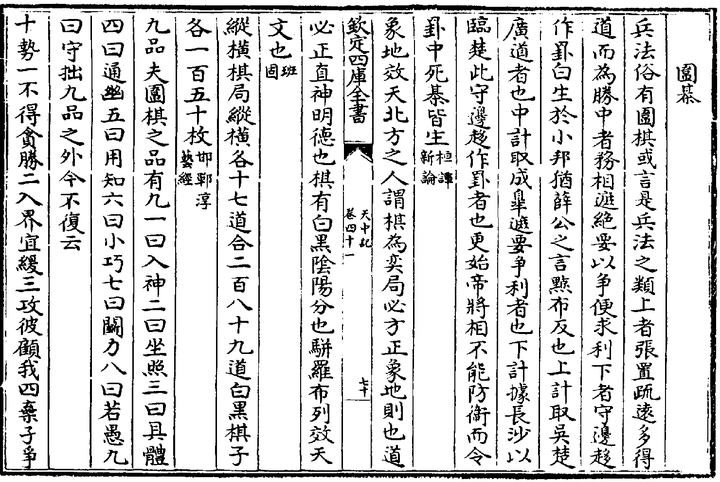 圍棊
兵法俗有圍棋或言是兵法之類上者張置疏遠多得
道而為勝中者務相遮絶要以争便求利下者守邊趍
作罫白生於小邦猶薛公之言黥布反也上計取吳楚
廣道者也中計取成臯遮要争利者也下計據長沙以
臨楚此守邊趍作罫者也更始帝將相不能防衛而令
罫中死棊皆生桓譚新論
象地效天北方之人謂棋為奕局必方正象地則也道
欽定四庫全書
天中記
卷四十一
七十
必正直神明德也棋有白黑陰陽分也駢羅布列效天
文也班固
縱橫棋局縱橫各十七道合二百八十九道白黑棋子
各一百五十枚邯鄲淳藝經
九品夫圍棋之品有九一曰入神二曰坐照三曰具體
四曰通幽五曰用知六曰小巧七曰鬬力八曰若愚九
曰守拙九品之外今不復云
十勢一不得貪勝二入界宜緩三攻彼顧我四棄子争